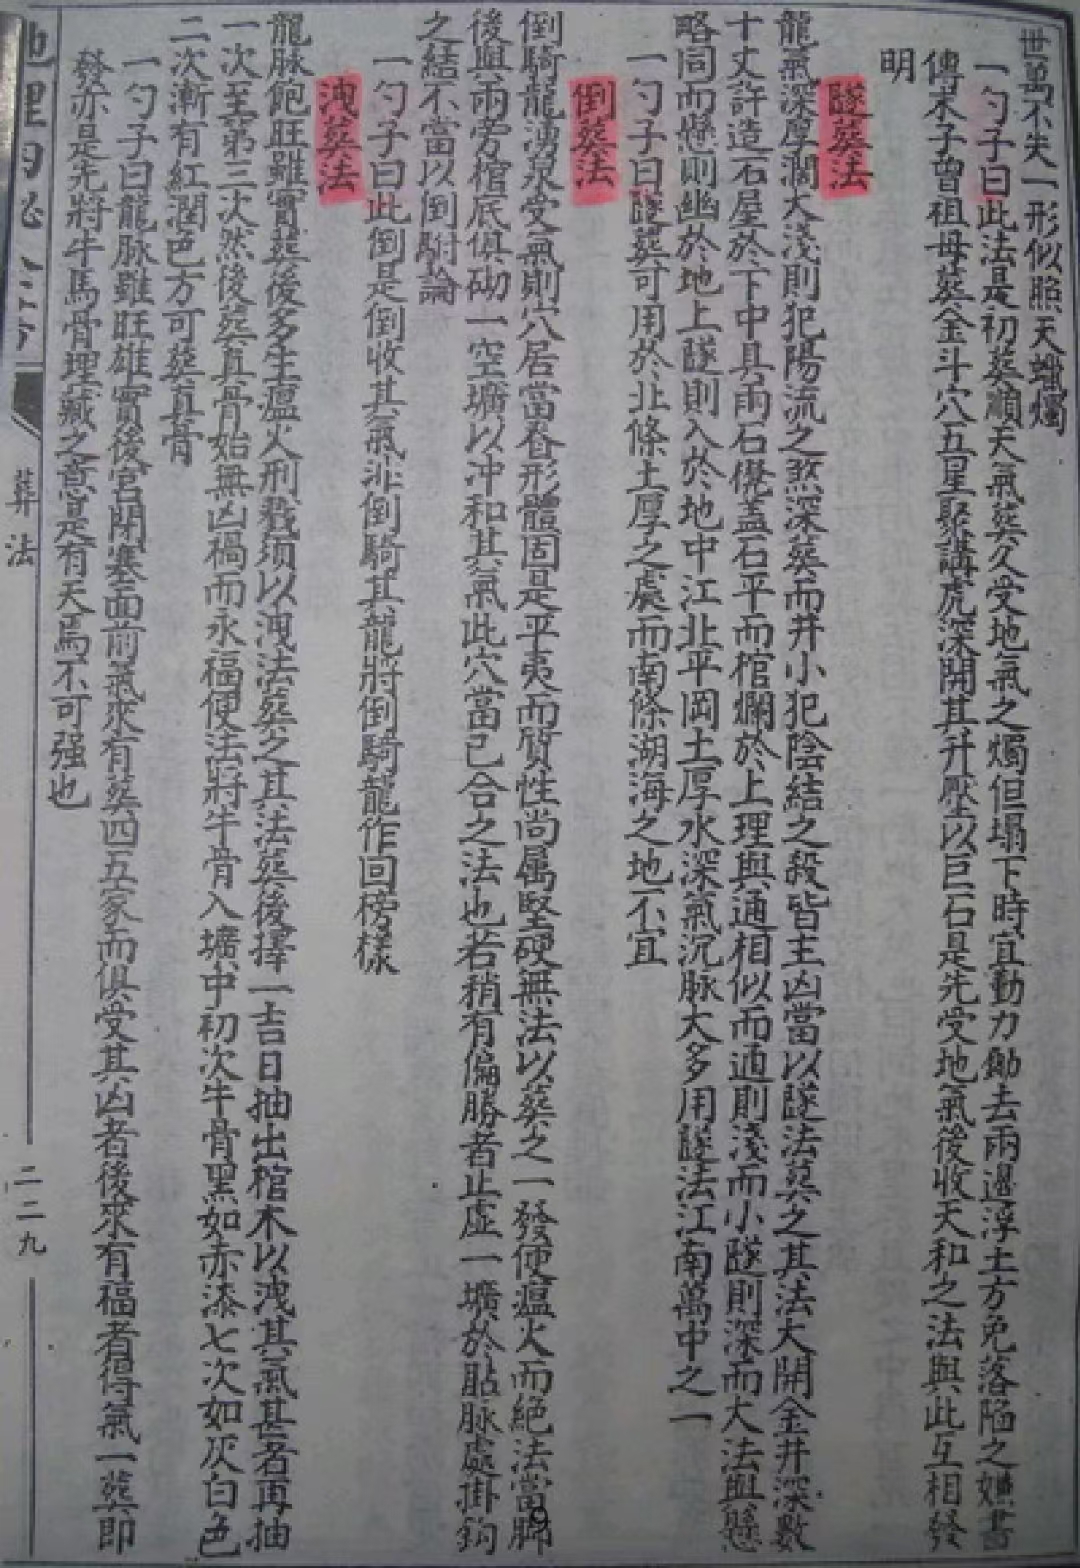 世萬不失一形似照天蠟燭
一勺子曰此法是初葬顺天氣葬久受地氣之燭但塌下時宜動力鋤去兩邊浮土方免落陷之嫌書
傳木子曾祖母葬金斗穴五星聚講虎深開其井壓以巨石是先受地氣後收天和之法與此互相發
明
隧葬法
龍氣深厚濶大淺則犯陽流之煞深葬而井小犯陰結之殺皆主凶當以隧法葬之其法大開金井深數
十丈許造石屋於下中具兩石凳蓋石平而棺爛於上理與通相似而通則淺而小隧則深而大法與懸
略同而懸則幽於地上隧則入於地中江北平岡土厚水深氣沉脉大多用隧法江南萬中之一
一勺子曰隧葬可用於北條土厚之處而南條湖海之地不宜
倒葬法
倒騎龍湧泉受氣則穴居當脊形體固是平夷而質性尚属堅硬無法以葬之一發便瘟火而絕法當脾
後與兩旁棺底俱砌一空壙以冲和其氣此穴當已合之法也若稍有偏勝者止虛一壙於貼脉處掛鈎
之結不當以倒騎論
一勺子曰此倒是倒收其氣非倒騎其龍將倒騎龍作回榜樣
洩葬法
龍脉飽旺雖實葬後多生瘟火刑戮須以洩法葬之其法葬後擇一吉日抽出棺木以洩其氣甚者再抽
一次至第三次然後葬真骨始無凶禍而永福便法將牛骨入壙中初次牛骨黑如赤漆七次如灰白色
二次漸有紅潤色方可葬真骨
一勺子曰龍脉雖旺雄實後宮閉塞面前氣來有葬四五家而俱受其凶者後來有福者得氣一葬即
發亦是先將牛馬骨埋藏之意是有天焉不可强也
葬法
二二九